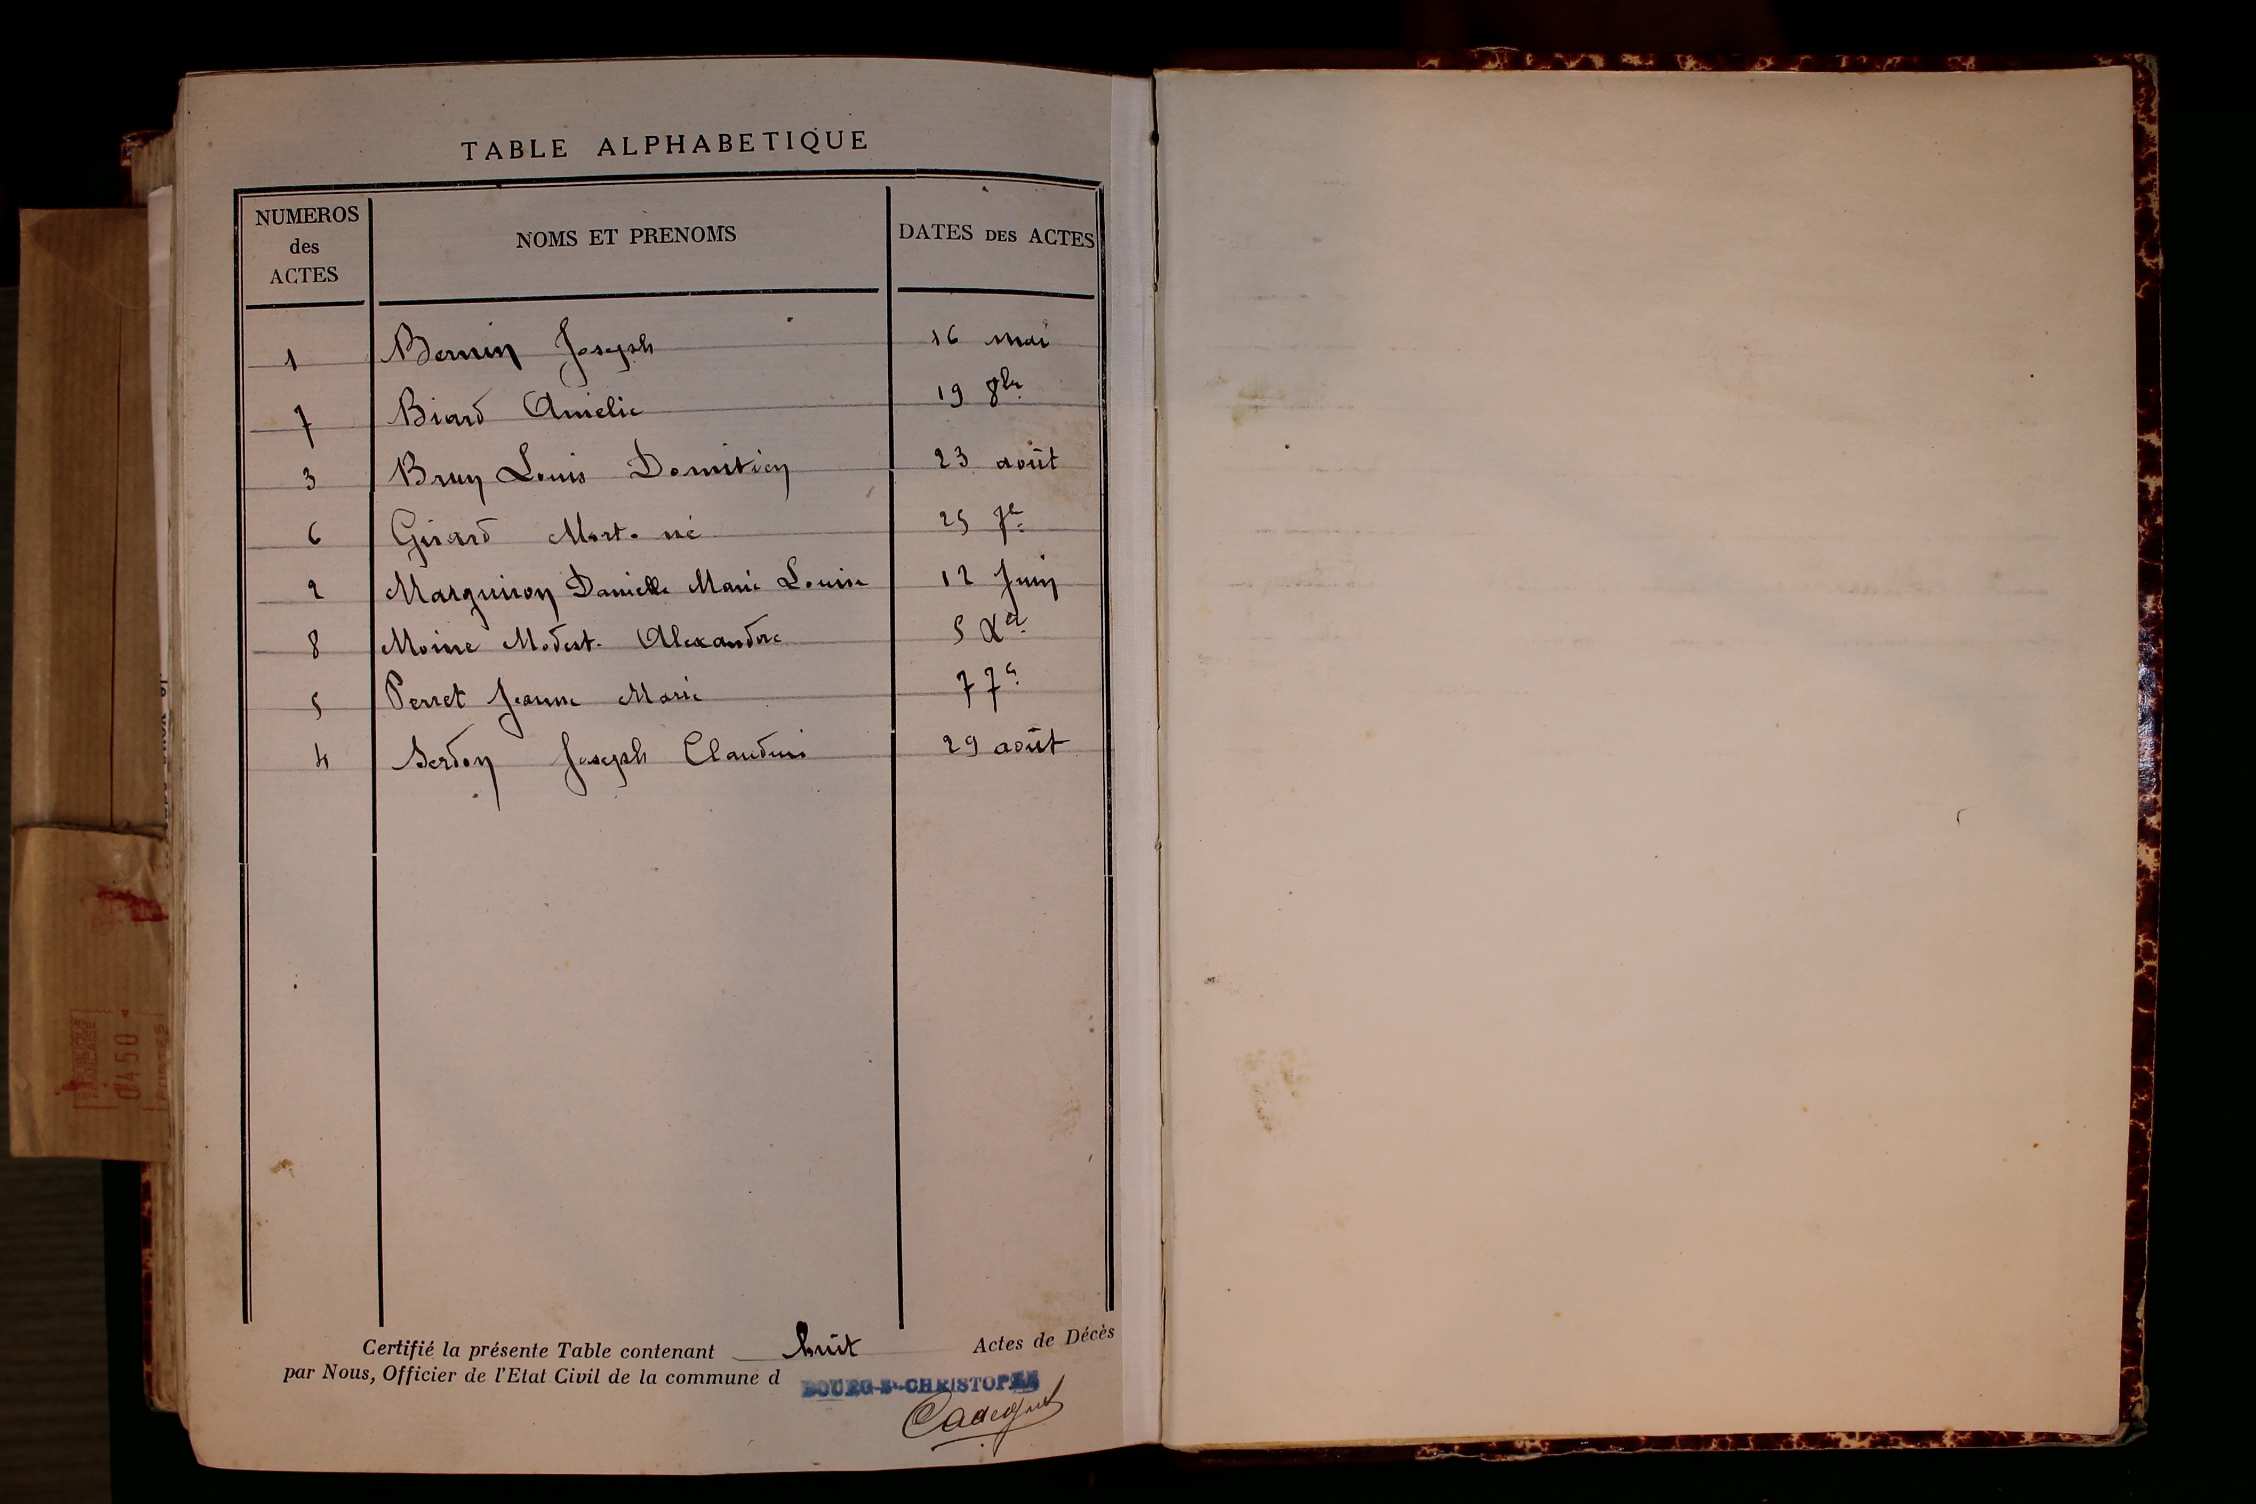 TABLE ALPHABETIQUE
NUMEROS des ACTES NOMS ET PRENOMS DATES DES ACTES
1 Bernin Joseph 16 mai
7 Biard Amélie 19 8bre
3 Brun Louis Domitien 23 août
6 Girard Mort-né 25 7e
2 Marguiron Danielle Marie Louise 12 Juin
8 Moine Modest. Alexandre 5 Xe
5 Perret Jeanne Marie 7 7e
4 Serdon Joseph Claudius 29 août
Certifié la présente Table contenant huit Actes de Décès
par Nous, Officier de l'Etat Civil de la commune d BOURG-St-CHRISTOPHE
0450